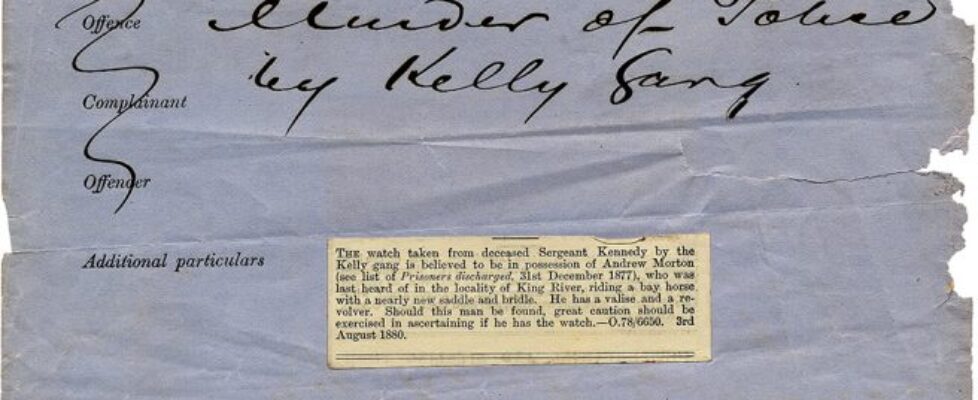 Offence Murder of Police
by Kelly Gang
Complainant
Offender
Additional particulars
THE watch taken from deceased Sergeant Kennedy by the
Kelly gang is believed to be in possession of Andrew Morton
(see list of Prisoners discharged, 31st December 1877), who was
last heard of in the locality of King River, riding a bay horse
with a nearly new saddle and bridle. He has a valise and a re-
volver. Should this man be found, great caution should be
exercised in ascertaining if he has the watch.—O.78/6650. 3rd
August 1880.